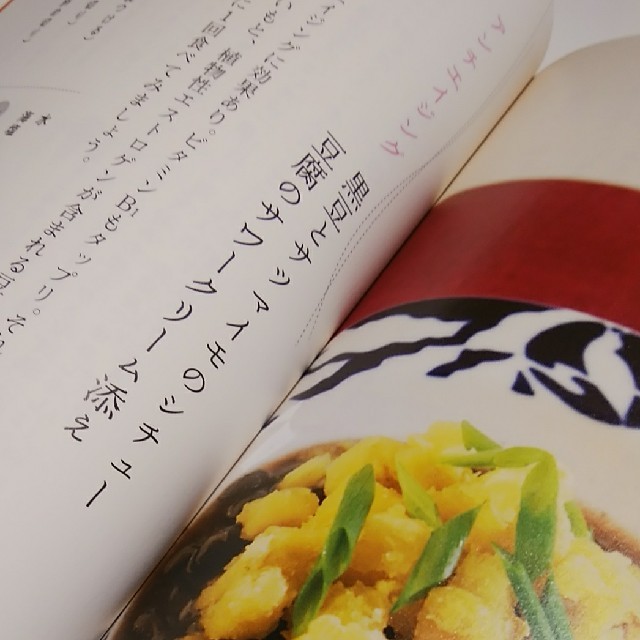 アンチエイジング
黒豆とサツマイモのシチュー
豆腐のサワークリーム添え
イジングに効果あり。ビタミンB1もタップリ。そ
植物性エストロゲンが含まれる豆
に1回食べてみましょう。